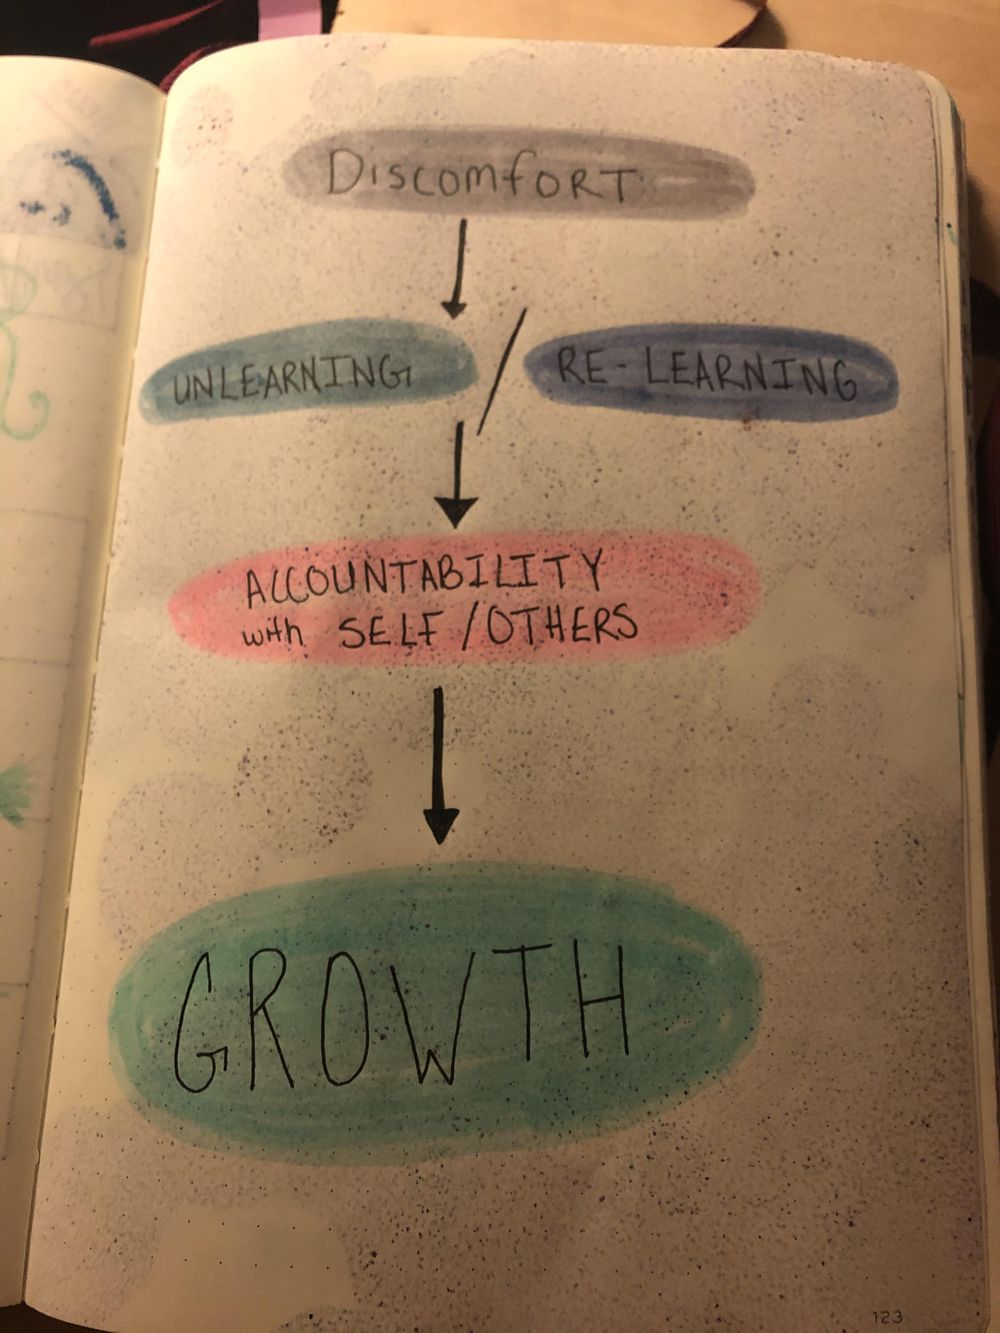 DiscomfORT
UNLEARNING / RE-LEARNING
ACCOUNTABILITY
with SELF/OTHERS
GROWTH
123